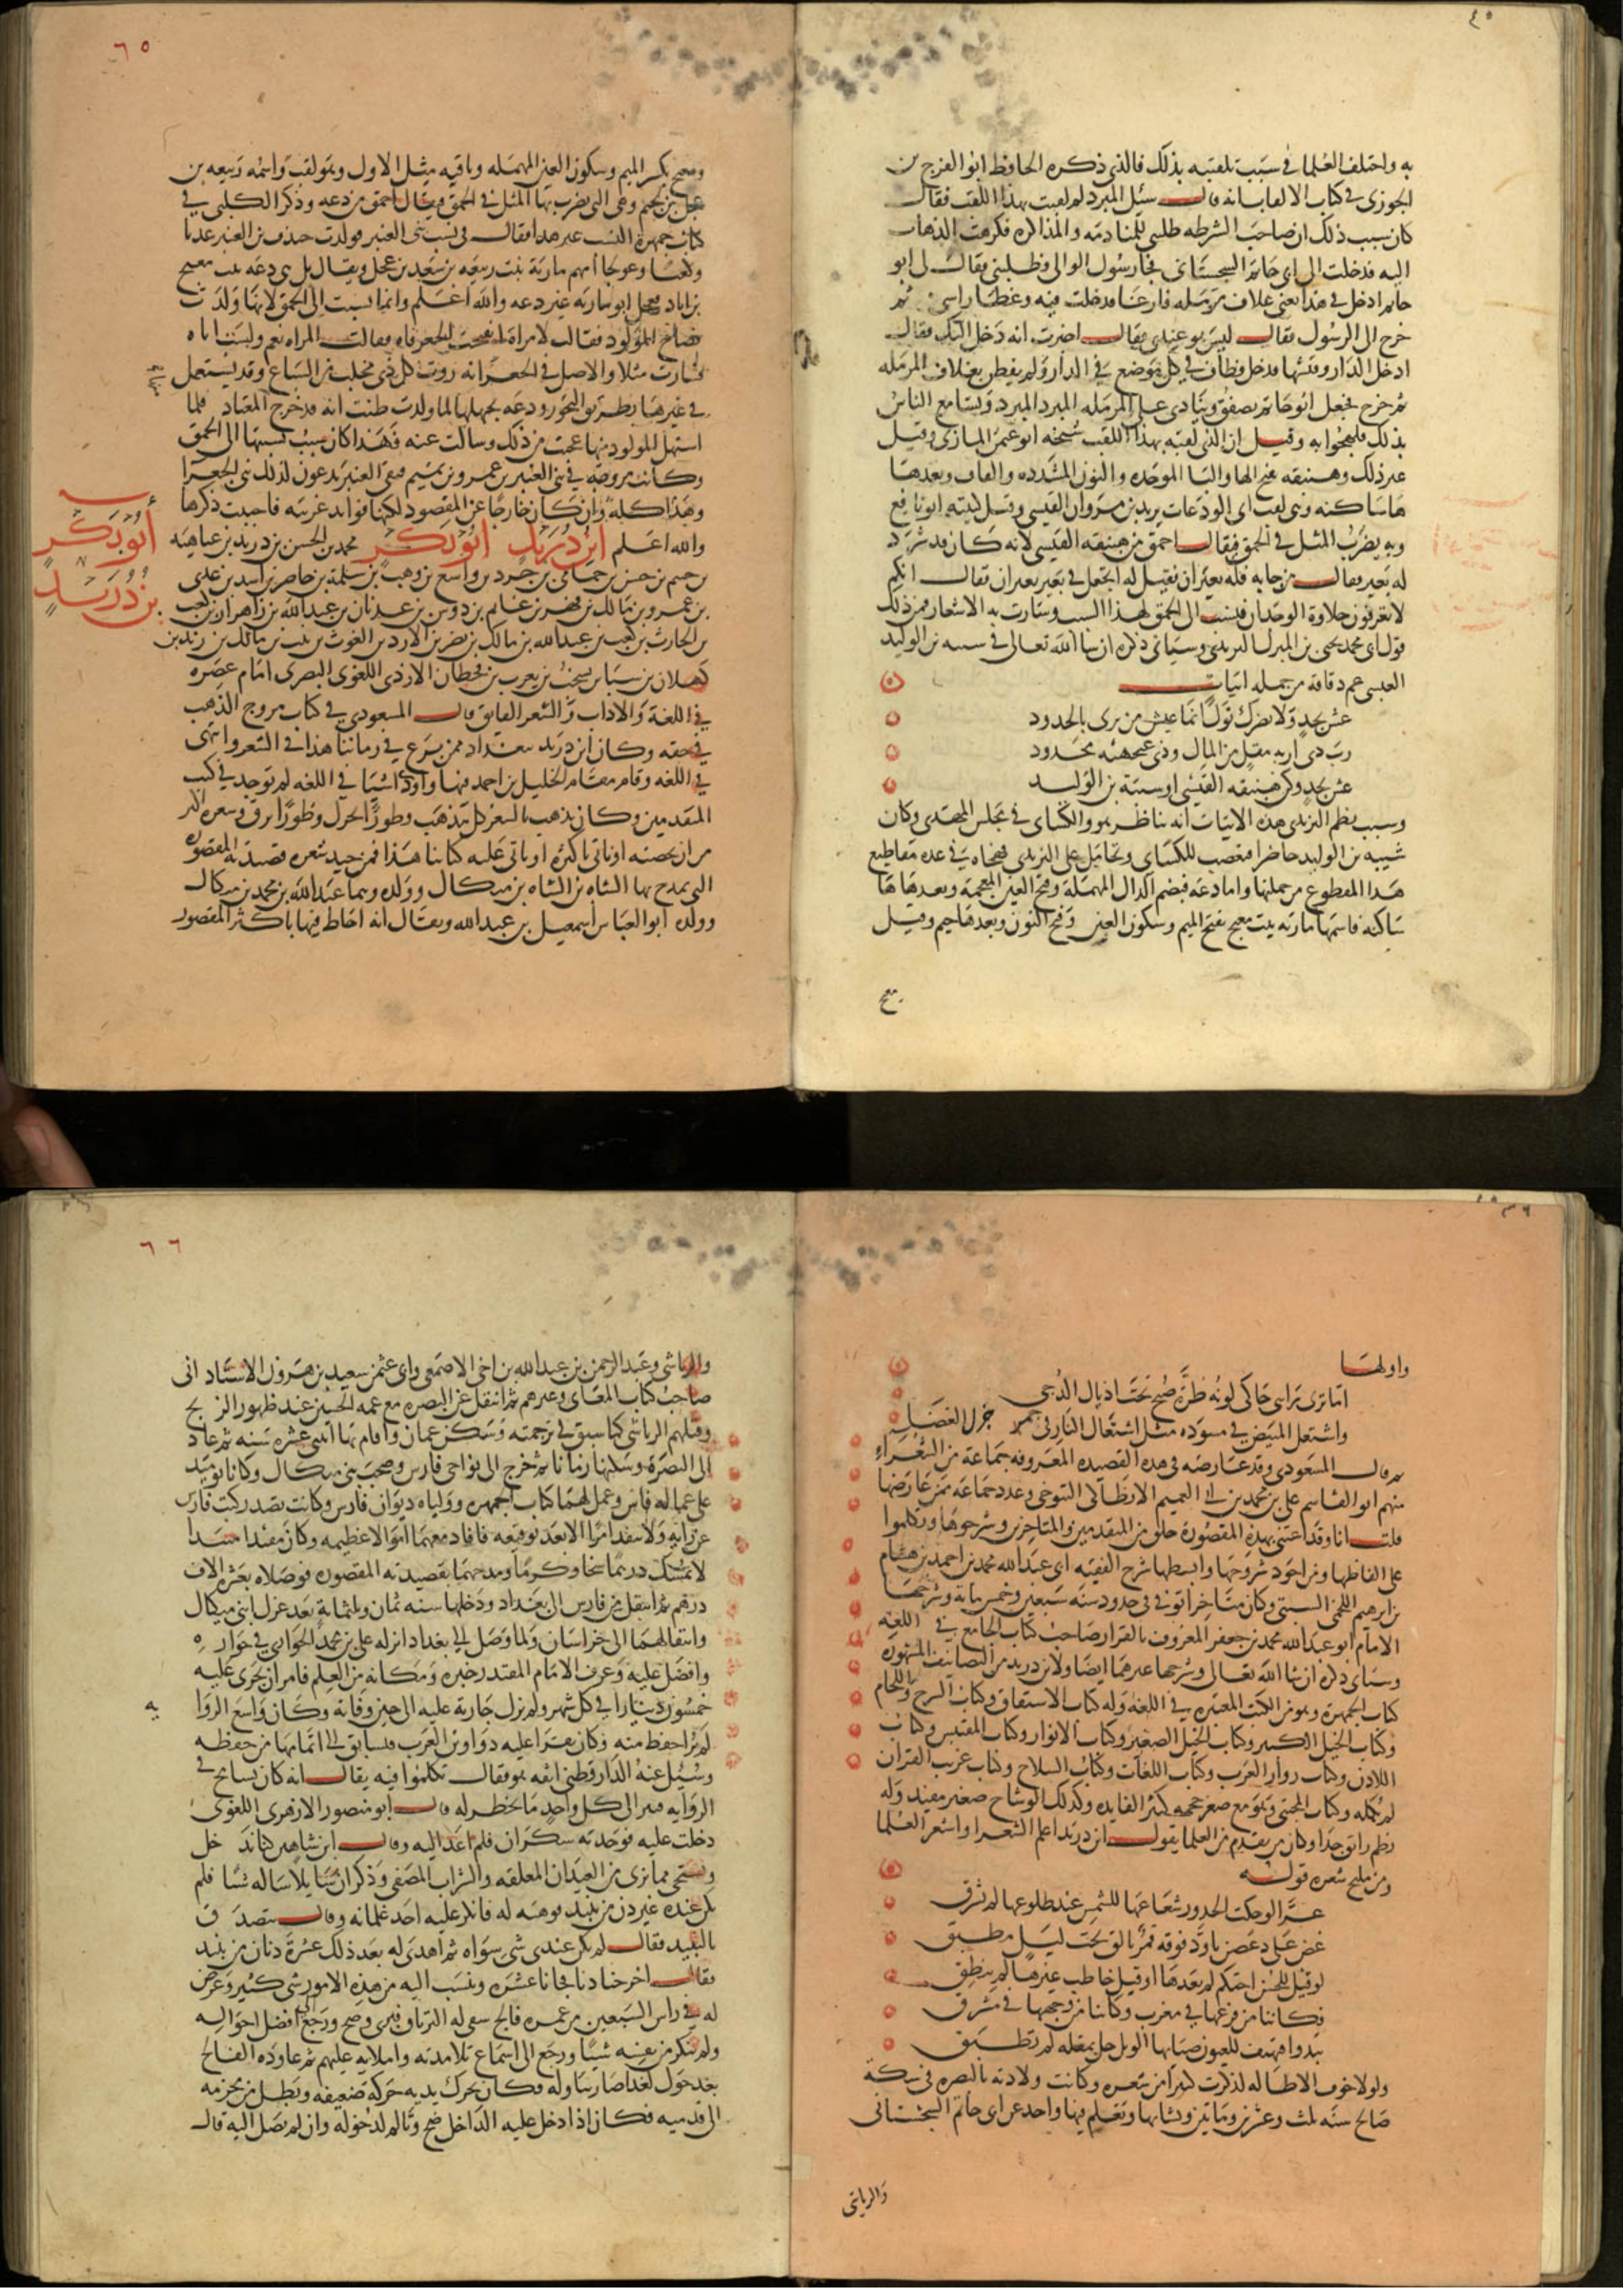 به واختلف العلما في سبب تلقيبه بذلك فالذي ذكره الحافظ ابو الفرج بن
الجوزي في كتاب الالقاب انه قال سئل المبرد لم لقبت بهذا اللقب فقال
كان سبب ذلك ان صاحب الشرطه طلبني للمنادمة والمذاكره فكرهت الذهاب
اليه فدخلت الى ابي حاتم السجستاني فجا رسول الوالي وطلبني فقال لي ابو
حاتم ادخل في هذا يعني غلاف مزمله فارغا فدخلت فيه وغطا راسي ثم
خرج الى الرسول فقال ليس هو عندي فقال اخبرت انه دخل اليك فقال
ادخل الدار وفتشها فدخل وطاف في كل موضع في الدار ولم يفطن بغلاف المزمله
ثم خرج فجعل ابو حاتم يصفق وينادي على المزمله المبرد المبرد وتسامع الناس
بذلك فلهجوا به وقيل ان الذي لقبه بهذا اللقب شيخه ابو عثمن المازني وقيل
غير ذلك وهبنقه بفتح الها والبا الموحده والنون المشدده والقاف وبعدها
ها ساكنه وهي لقب ابي الودعات يزيد بن مروان القيسي وقيل كنيته ابو نافع
وبه يضرب المثل في الحمق فيقال احمق من هبنقه القيسي لانه كان قد شرد
له بعير فقال من جا به فله بعيران فقيل له اتجعل في بعير بعيران فقال انكم
لا تعرفون حلاوة الوجدان فنسب الى الحمق لهذا السبب وسارت به الاشعار فمن ذلك
قول ابي محمد يحيى بن المبارك اليزيدي وسياتي ذكره ان شا الله تعالى في شيبه بن الوليد
العبسي عم دقاقه من جمله ابيات
عش بجد ولا يضرك نوك انما عيش من يرى بالجدود
رب ذي اربه مقل من المال وذي عنجهيه مجدود
عش بجد وكن هبنقه القيسي او شيبة بن الوليد
وسبب نظم اليزيدي هذه الابيات انه تناظر هو والكساي في مجلس المهدي وكان
شيبه بن الوليد حاضرا فتعصب للكساي وتحامل على اليزيدي فهجاه في عده مقاطيع
هذا المقطوع من جملتها واما دغه فبضم الدال المهمله وفتح الغين المعجمه وبعدها ها
ساكنه فاسمها ماريه بنت معنج بفتح الميم وسكون العين وفتح النون وبعدها جيم وقيل
معنج
٦٥
ومعنج بكسر الميم وسكون العين المهمله وباقيه مثل الاول وهو لقب واسمه ربيعه بن
عجل بن لجيم وهي التي يضرب بها المثل في الحمق فيقال احمق من دغه وذكر الكلبي في
كتاب جمهرة النسب غير هذا فقال في نسب بني العنبر فولدت جندب بن العنبر عديا
وكعبا وعويجا امهم مارية بنت ربيعه بن سعد بن عجل ويقال بل هي دغه بنت معنج
بن اياد فجعل ابو ماريه غير دغه والله اعلم وانما نسبت الى الحمق لانها ولدت
فصاح المولود فقالت لامراة ايفتح الجعر فاه فقالت المراه نعم ويسب اباه
فسارت مثلا والاصل في الجعر انه روث كل ذي مخلب من السباع وقد يستعمل
في غيرها بطريق التجوز ودغه بجهلها لما ولدت ظنت انه قد خرج المعتاد فلما
استهل المولود منها عجبت من ذلك وسالت عنه فهذا كان سبب نسبتها الى الحمق
وكانت متزوجه في بني العنبر بن عمرو بن تميم فبنو العنبر يدعون لذلك بني الجعرا
وهذا كله وان كان خارجا عن المقصود لكنها فوايد غريبه فاحببت ذكرها
والله اعلم ابن دريد ابو بكر محمد بن الحسن بن دريد بن عتاهيه
أبو بكر
بن دريد
بن حنتم بن حسن بن حمامي بن جرو بن واسع بن وهب بن سلمة بن حاضر بن اسد بن عدي
بن عمرو بن مالك بن فهم بن غانم بن دوس بن عدنان بن عبد الله بن زهران بن كعب
بن الحارث بن كعب بن عبد الله بن مالك بن نصر بن الازد بن الغوث بن نبت بن مالك بن زيد بن
كهلان بن سبا بن يشجب بن يعرب بن قحطان الازدي اللغوي البصري امام عصره
في اللغة والاداب والشعر الفايق قال المسعودي في كتاب مروج الذهب
في حقه وكان ابن دريد ببغداد ممن برع في زماننا هذا في الشعر وانتهى
في اللغه وقام مقام الخليل بن احمد فيها واورد اشيا في اللغه لم توجد في كتب
المتقدمين وكان يذهب بالشعر كل مذهب وطورا يجزل وطورا يرق وشعره اكثر
من ان نحصيه او ناتي باكثره او ياتي عليه كتابنا هذا فمن جيد شعره قصيدته المقصوره
التي يمدح بها الشاه بن الشاه بن ميكال وولده وهما عبد الله بن محمد بن ميكال
وولده ابو العباس اسمعيل بن عبد الله ويقال انه احاط فيها باكثر المقصور
واولها
اما ترى راسي حاكى لونه طرة صبح تحت اذيال الدجى
واشتعل المبيض في مسوده مثل اشتعال النار في جمر جزل الغضا
ثم قال المسعودي وقد عارضه في هذه القصيده المعروفه جماعة من الشعراء
منهم ابو القاسم علي بن محمد بن ابي الفهيم الانطاكي التنوخي وعدد جماعة ممن عارضها
قلت انا وقد اعتنى بهذه المقصورة خلق من المتقدمين والمتاخرين وشرحوها وتكلموا
على الفاظها ومن اجود شروحها وابسطها شرح الفقيه ابي عبد الله محمد بن احمد بن هشام
بن ابرهيم اللخمي السبتي وكان متاخرا توفي في حدود سنة سبعين وخمس مايه وشرحها
الامام ابو عبد الله محمد بن جعفر المعروف بالقزاز صاحب كتاب الجامع في اللغه
وسياتي ذكره ان شا الله تعالى وشرحها غيرهما ايضا ولابن دريد من التصانيف المشهوره
كتاب الجمهرة وهو من الكتب المعتبره في اللغه وله كتاب الاشتقاق وكتاب السرج واللجام
وكتاب الخيل الكبير وكتاب الخيل الصغير وكتاب الانوار وكتاب المقتبس وكتاب
الملاحن وكتاب زوار العرب وكتاب اللغات وكتاب السلاح وكتاب غريب القران
لم يكمله وكتاب المجتنى وهو مع صغر حجمه كثير الفايده وكذلك الوشاح صغير مفيد وله
نظم رايق جدا وكان من تقدم من العلما يقول ابن دريد اعلم الشعرا واشعر العلما
ومن مليح شعره قوله
غرا لو جلت الخدور شعاعها للشمس عند طلوعها لم تشرق
غصن على دعص تاود فوقه قمر تالق تحت ليل مطبق
لو قيل للحسن احتكم لم يعدها او قيل خاطب غيرها لم ينطق
فكاننا من فرعها في مغرب وكاننا من وجهها في مشرق
تبدوا فيهتف للعيون ضياها الويل حل بمقله لم تطبق
ولولا خوف الاطاله لذكرت كثيرا من شعره وكانت ولادته بالبصره في سكة
صالح سنه ثلث وعشرين ومايتين ونشا بها وتعلم فيها واخذ عن ابي حاتم السجستاني
والرياشي
٦٦
والرياشي وعبد الرحمن بن عبد الله بن اخي الاصمعي وابي عثمن سعيد بن هرون الاشنانداني
صاحب كتاب المعاني وغيرهم ثم انتقل عن البصره مع عمه الحسين عند ظهور الزنج
وقتلهم الرياشي كما سبق في ترجمته وسكن عمان واقام بها اثنتي عشره سنه ثم عاد
الى البصرة وسكنها زمانا ثم خرج الى نواحي فارس وصحب بني ميكال وكانا يوميذ
على عماله فارس وعمل لهما كتاب الجمهره وولياه ديوان فارس وكانت تصدر كتب فارس
عن رايه ولا ينفذ امر الا بعد توقيعه فافاد معهما اموالا عظيمه وكان مفيدا مبيدا
لا يمسك درهما سخا وكرما ومدحهما بقصيدته المقصوره فوصلاه بعشره الاف
درهم ثم انتقل من فارس الى بغداد ودخلها سنه ثمان وثلثمايه بعد عزل ابني ميكال
وانتقالهما الى خراسان ولما وصل الى بغداد انزله علي بن محمد الحواري في جواره
وافضل عليه وعرف الامام المقتدر خبره ومكانه من العلم فامر ان يجرى عليه
خمسون دينارا في كل شهر ولم تزل جارية عليه الى حين وفاته وكان واسع الروايه
لم ير احفظ منه وكان يقرا عليه دواوين العرب فيسابق الى اتمامها من حفظه
وسئل عنه الدارقطني اثقه هو فقال تكلموا فيه يقال انه كان يتسامح في
الروايه فيسند الى كل واحد ما يخطر له قال ابو منصور الازهري اللغوي
دخلت عليه فوجدته سكران فلم اعد اليه وقال ابن شاهين كنا ندخل
ونستحي مما نرى من العيدان المعلقه والشراب المصفى وذكر ان سايلا ساله شيا فلم
يكن عنده غير دن من نبيذ فوهبه له فانكر عليه احد غلمانه وقال تتصدق
بالنبيذ فقال لم يكن عندي شي سواه ثم اهدي له بعد ذلك عشرة دنان من نبيذ
فقال اخرجنا دنا فجانا عشره وينسب اليه من هذه الامور شي كثير وعرض
له في راس التسعين من عمره فالج سقي له الترياق فبرى وصح ورجع الى افضل احواله
ولم ينكر من نفسه شيئا ورجع الى اسماع تلامذته واملايه عليهم ثم عاوده الفالج
بعد حول لغذا ضار تناوله فكان يحرك يديه حركة ضعيفه وبطل من محزمه
الى قدميه فكان اذا دخل عليه الداخل ضج وتالم لدخوله وان لم يصل اليه قال